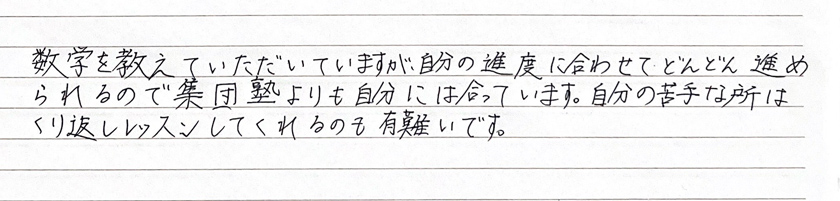 数学を教えていただいていますが、自分の進度に合わせてどんどん進め
られるので集団塾よりも自分には合っています。自分の苦手な所は
くり返しレッスンしてくれるのも有難いです。